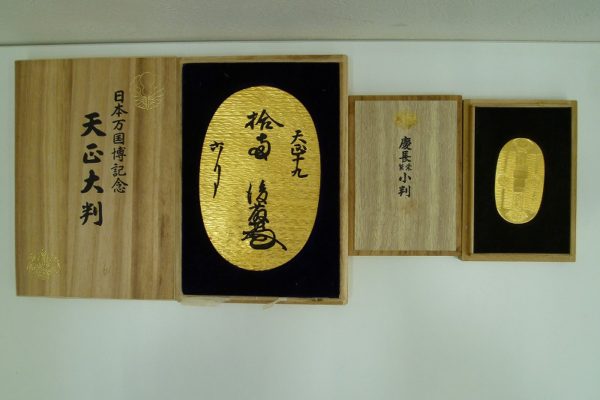 日本万国博記念
天正大判
天正十九
拾両後藤
慶長
小判